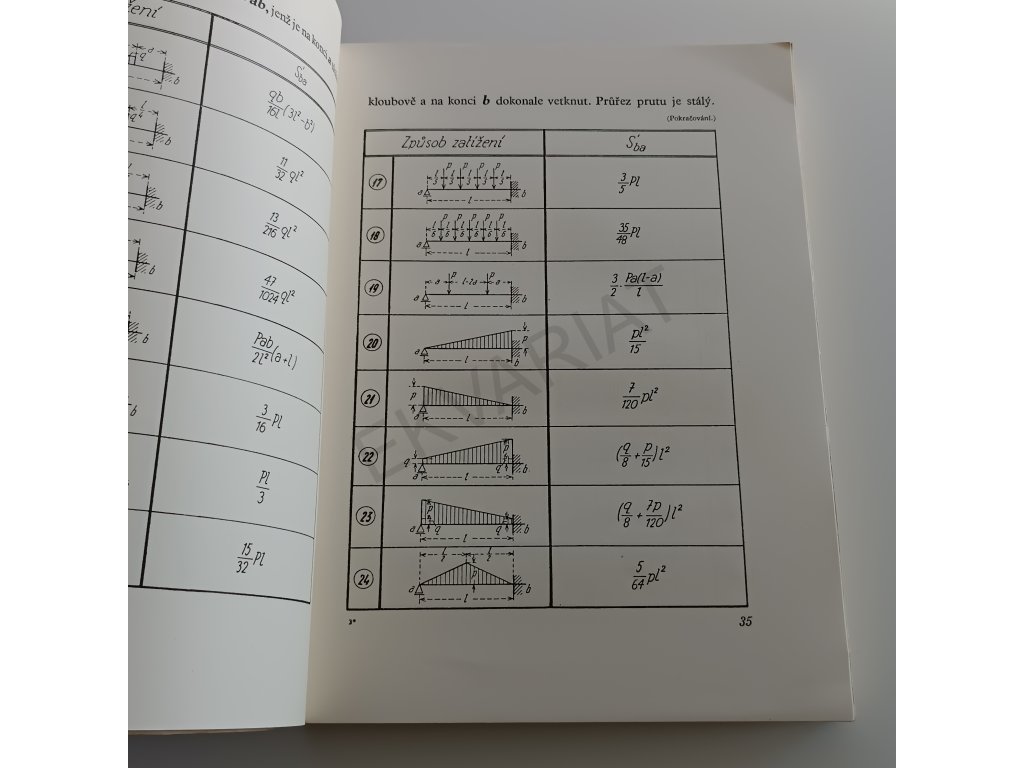 ab, jenž je na konci a
ížení
S′ba
qb/16l (3l²−b²)
11/32 ql²
13/216 ql²
47/1024 ql²
Pab/2l² (a+l)
3/16 Pl
Pl/3
15/32 Pl
kloubově a na konci b dokonale vetknut. Průřez prutu je stálý.
(Pokračování.)
Způsob zatížení S′ba
17 3/5 Pl
18 35/48 Pl
19 3/2 · Pa(l−a)/l
20 pl²/15
21 7/120 pl²
22 (q/8 + p/15) l²
23 (q/8 + 7p/120) l²
24 5/64 pl²
3* 35
EKVARIAT